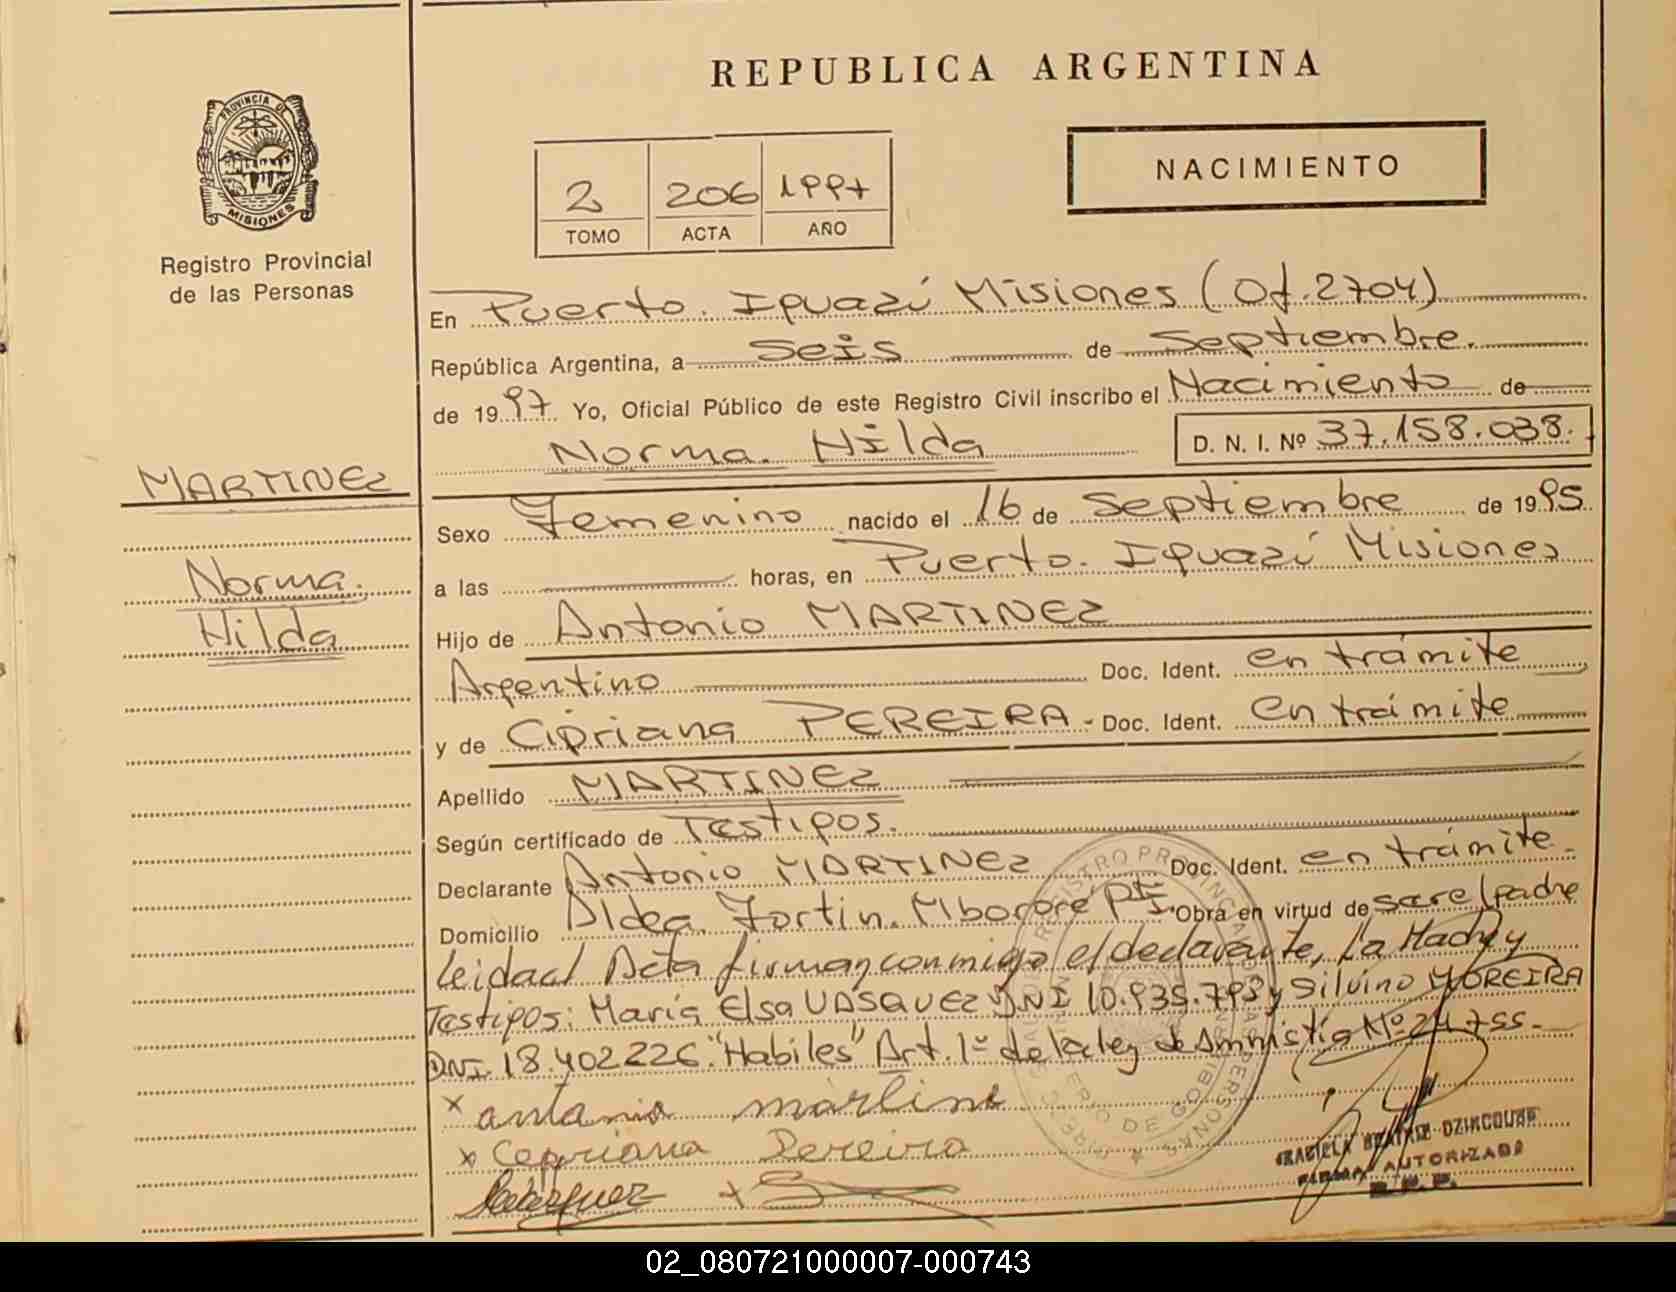 REPUBLICA ARGENTINA
PROVINCIA DE
MISIONES
Registro Provincial
de las Personas
NACIMIENTO
2 206 1997
TOMO ACTA AÑO
En Puerto. Iguazú Misiones (Of. 2704)
República Argentina, a Seis de Septiembre.
de 1997 Yo, Oficial Público de este Registro Civil inscribo el Nacimiento de
Norma. Hilda D. N. I. Nº 37.158.038.
MARTINEZ
Norma.
Hilda
Sexo Femenino nacido el 16 de Septiembre de 1995
a las horas, en Puerto. Iguazú Misiones
Hijo de Antonio MARTINEZ
Argentino Doc. Ident. en trámite
y de Cipriana PEREIRA - Doc. Ident. en trámite
Apellido MARTINEZ
Según certificado de Testigos.
Declarante Antonio MARTINEZ Doc. Ident. en trámite.
Domicilio Aldea. Fortin. Mbororé Obra en virtud de ser el padre
Leida el Acta firman conmigo el declarante, La Madre y
Testigos: María Elsa VASQUEZ DNI 10.935.793 y Silvino MOREIRA
DNI. 18.402226. "Habiles" Art. 1º de la ley de Amnistía Nº 24.755.-
x antonio
x Cepriana Pereira
FIRMA AUTORIZADA
R.P.P.
02_080721000007-000743